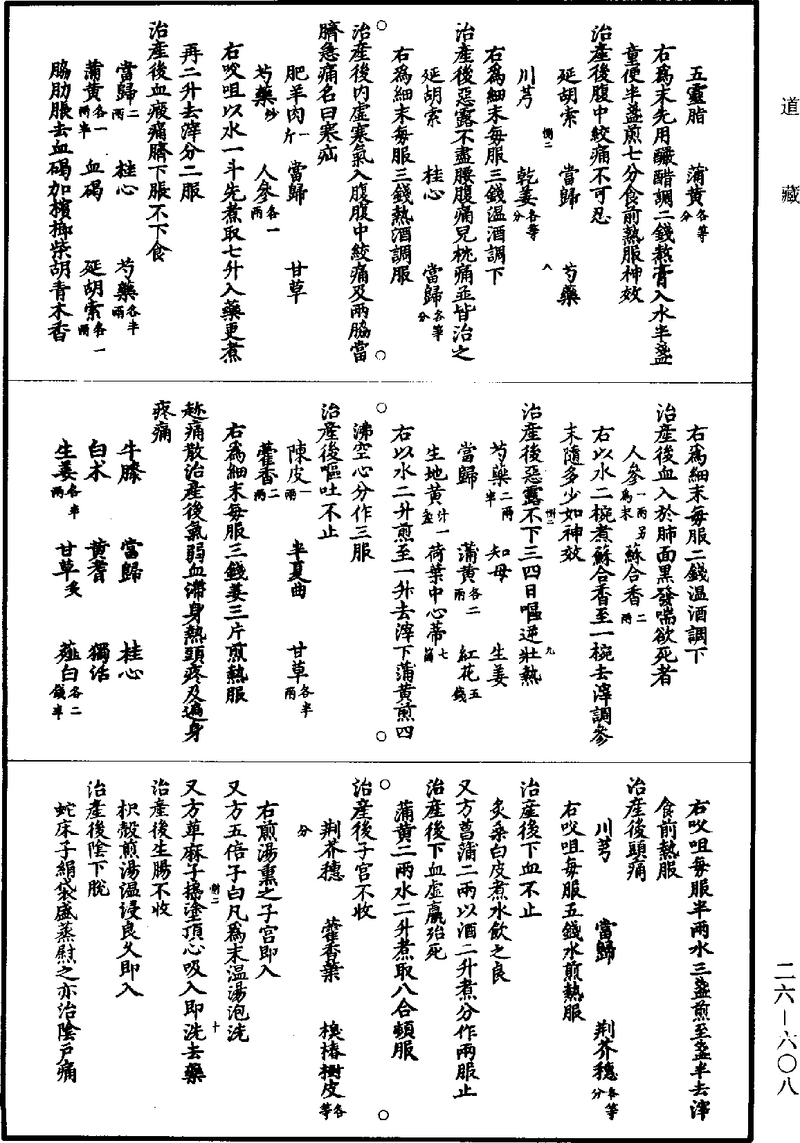 道藏
五靈脂　蒲黃各等分
右爲末先用釅醋調二錢熬膏入水半盞
童便半盞煎七分食前熱服神效
治産後腹中絞痛不可忍
延胡索　當歸　芍藥
川芎　乾姜各等分
右爲細末每服三錢温酒調下
治産後惡露不盡腰腹痛兒枕痛並皆治之
延胡索　桂心　當歸各等分
右爲細末每服三錢熱酒調服
治産後内虚寒氣入腹腹中絞痛及兩脇當
臍急痛名曰寒疝
肥羊肉一斤　當歸　甘草
芍藥炒　人參各一兩
右㕮咀以水一斗先煮取七升入藥更煮
再二升去滓分二服
治産後血瘕痛臍下脹不下食
當歸二兩　桂心　芍藥各半兩
蒲黃各一兩半　血碣　延胡索各一兩
脇肋脹去血碣加檳榔柴胡青木香
右爲細末每服二錢温酒調下
治産後血入於肺面黑發喘欲死者
人參一兩另爲末　蘇合香二兩
右以水二椀煮蘇合香至一椀去滓調參
末隨多少如神效
治産後惡露不下三四日嘔逆壯熱
芍藥二兩半　知母　生姜
當歸　蒲黃各二兩　紅花五錢
生地黃汁一盞　荷葉中心蒂七箇
右以水二升煎至一升去滓下蒲黃煎四
沸空心分作三服
治産後嘔吐不止
陳皮一兩　半夏曲　甘草各半兩
藿香二兩
右爲細末每服三錢姜三片煎熱服
趂痛散治産後氣弱血滯身熱頭疼及遍身
疼痛
牛膝　當歸　桂心
白术　黃耆　獨活
生姜各半兩　甘草炙　薤白各二錢半
右㕮咀每服半兩水三盞煎至盞半去滓
食前熱服
治産後頭痛
川芎　當歸　荆芥穗各等分
右㕮咀每服五錢水煎熱服
治産後下血不止
炙桑白皮煮水飲之良
又方菖蒲二兩以酒二升煮分作兩服止
治産後下血虚羸殆死
蒲黃二兩水二升煮取八合頓服
治産後子宮不收
荆芥穗　藿香葉　樗椿樹皮各等分
右煎湯熏之子宮即入
又方五倍子白凡爲末温湯泡洗
又方草麻子擣塗頂心吸入即洗去藥
治産後生腸不收
枳殼煎湯温浸良久即入
治産後陰下脫
蛇床子絹袋盛蒸熨之亦治陰戶痛
二六—六〇八